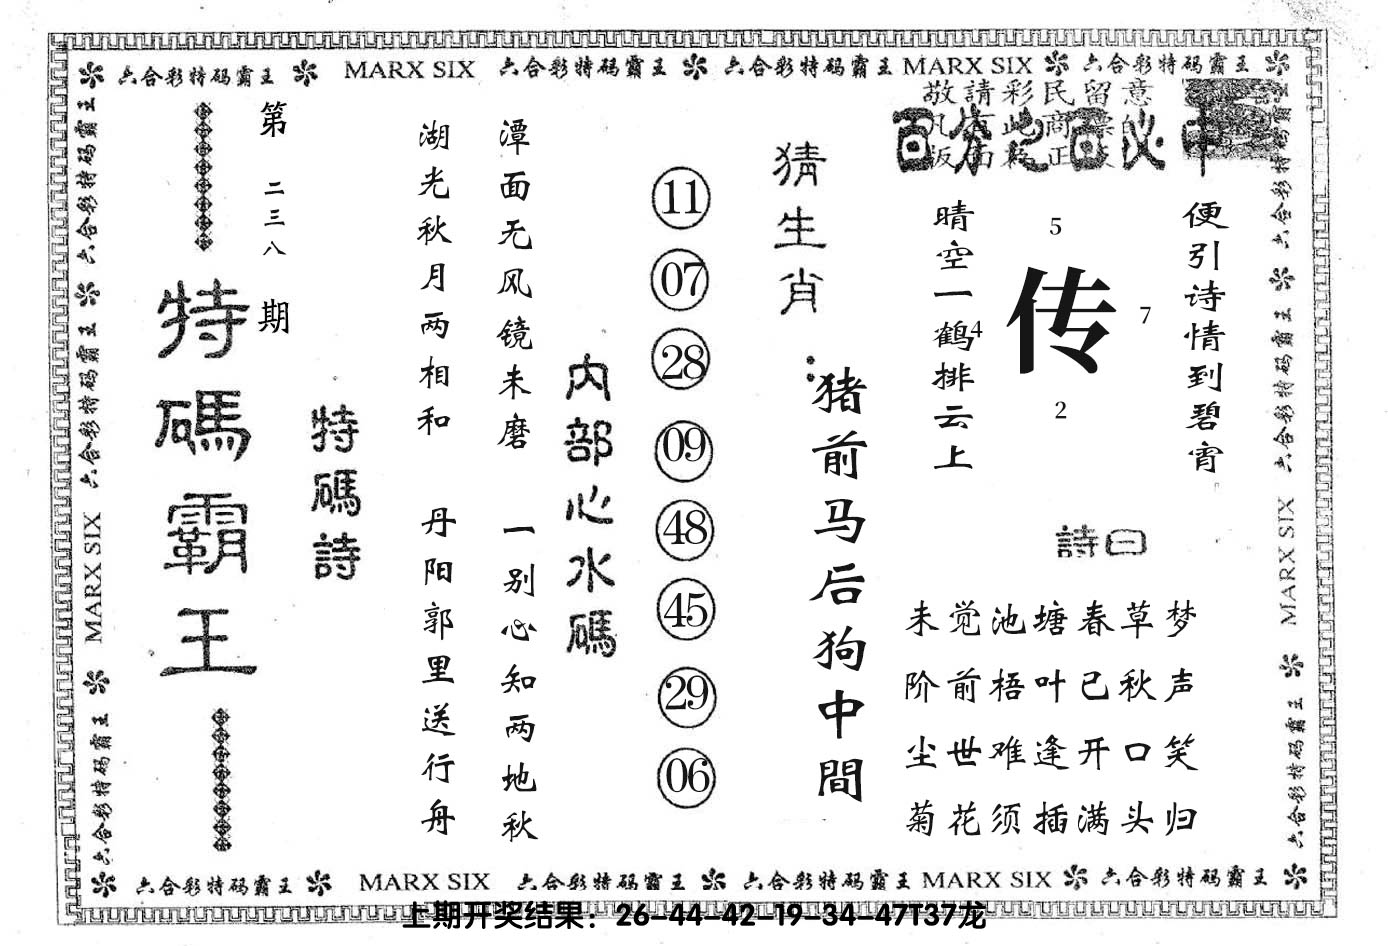 六合彩特码霸王 MARX SIX 六合彩特码霸王 六合彩特码霸王 MARX SIX 六合彩特码霸王
敬請彩民留意
百分之百必中
第二三八期
特碼霸王
特碼詩
湖光秋月两相和
潭面无风镜未磨
丹阳郭里送行舟
一别心知两地秋
内部心水碼
11
07
28
09
48
45
29
06
猜生肖：
猪前马后狗中間
晴空一鹤排云上
便引诗情到碧宵
5
4
传
7
2
詩曰
未觉池塘春草梦
阶前梧叶已秋声
尘世难逢开口笑
菊花须插满头归
六合彩特码霸王 MARX SIX 六合彩特码霸王
六合彩特码霸王 MARX SIX 六合彩特码霸王
六合彩特码霸王 MARX SIX 六合彩特码霸王 六合彩特码霸王 MARX SIX 六合彩特码霸王
上期开奖结果：26-44-42-19-34-47T37龙